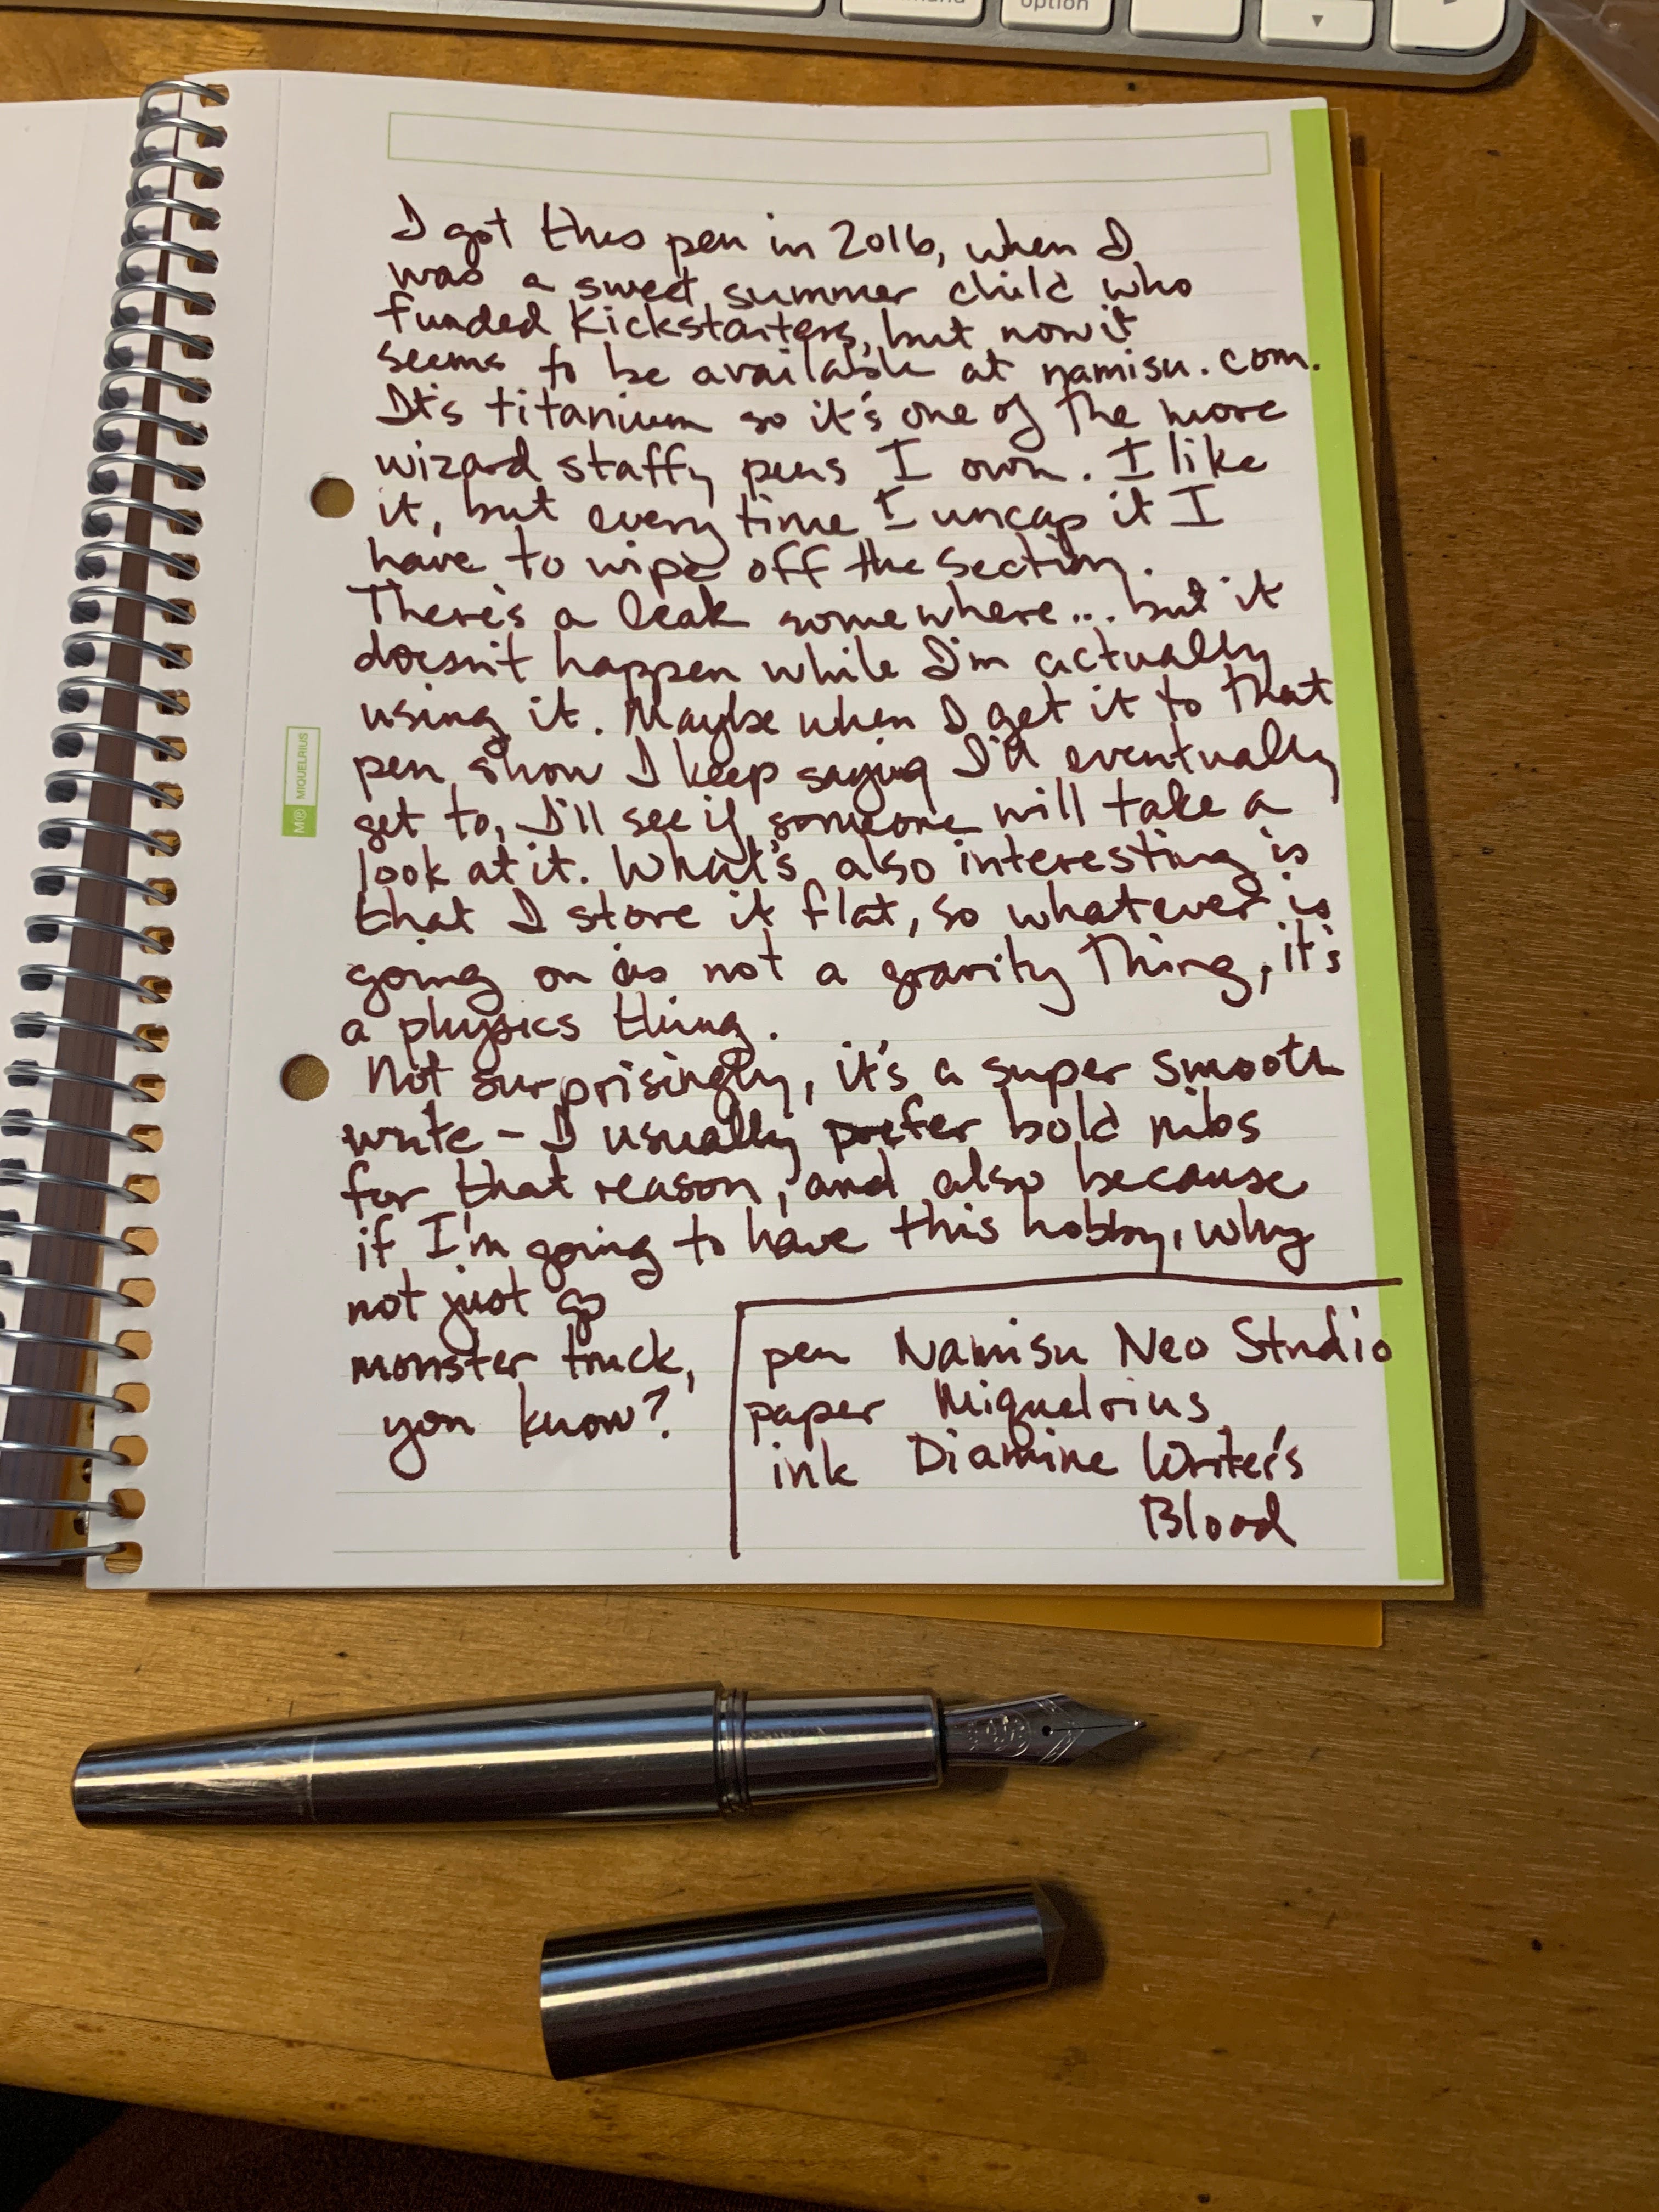 option
I got this pen in 2016, when I
was a sweet summer child who
funded Kickstarters, but now it
seems to be available at namisu.com.
It's titanium so it's one of the more
wizard staffy pens I own. I like
it, but every time I uncap it I
have to wipe off the section.
There's a leak somewhere... but it
doesn't happen while I'm actually
using it. Maybe when I get it to that
pen show I keep saying I'll eventually
get to, I'll see if someone will take a
look at it. What's also interesting is
that I store it flat, so whatever is
going on is not a gravity thing, it's
a physics thing.
Not surprisingly, it's a super smooth
write - I usually prefer bold nibs
for that reason, and also because
if I'm going to have this hobby, why
not just go
monster truck,
you know?
pen Namisu Neo Studio
paper Miquelrius
ink Diamine Writer's
Blood
M® MIQUELRIUS